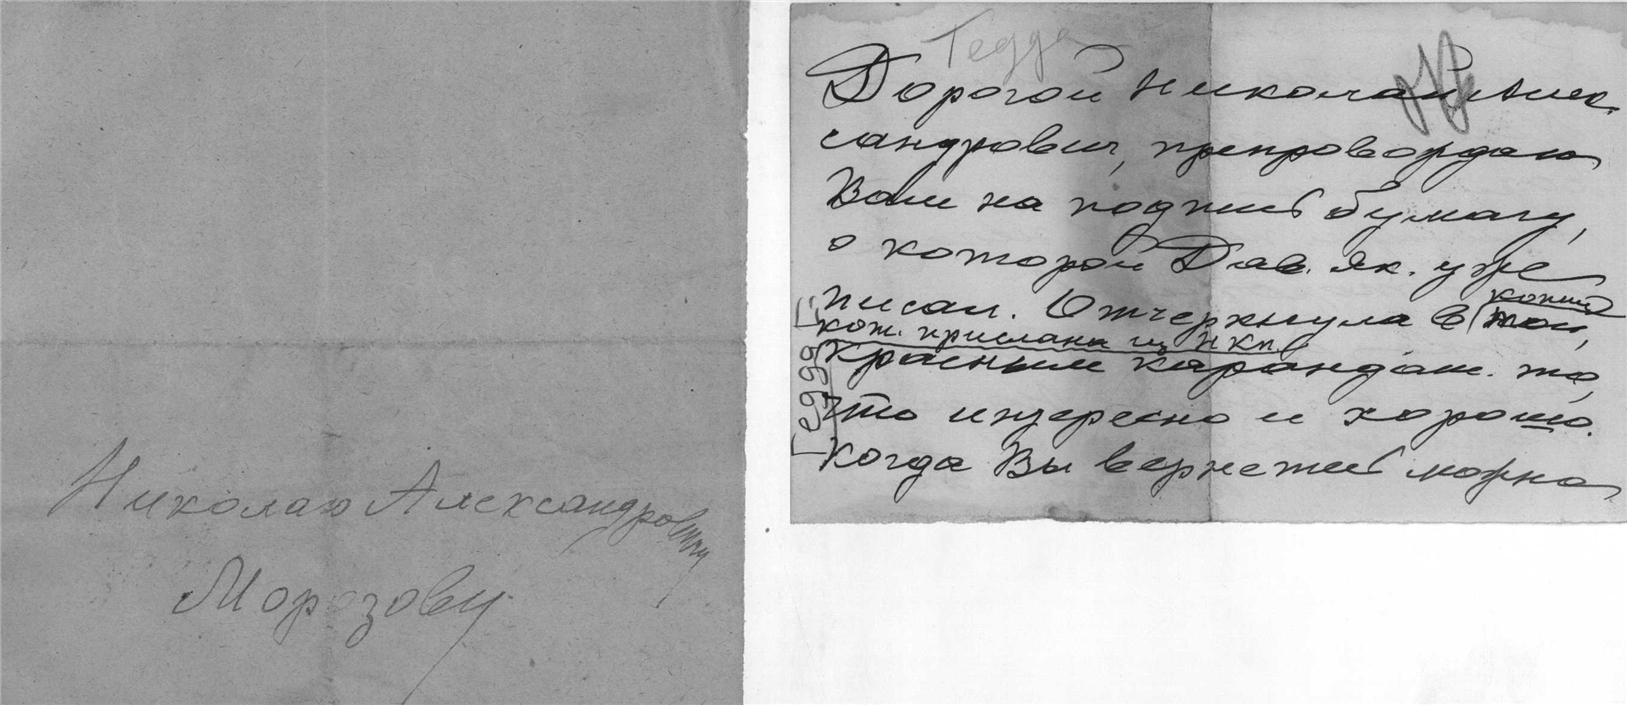 Николаю Александровичу
Морозову
Гедда
Дорогой Николай Алек-
сандрович, препровождаю
Вам на подпись бумагу,
о которой Дав. Як. уже
писал. Отчеркнула в той
копии
кот. прислана из НКП.
красным карандаш. то,
что интересно и хорошо.
Когда Вы вернетесь можно
Гедда